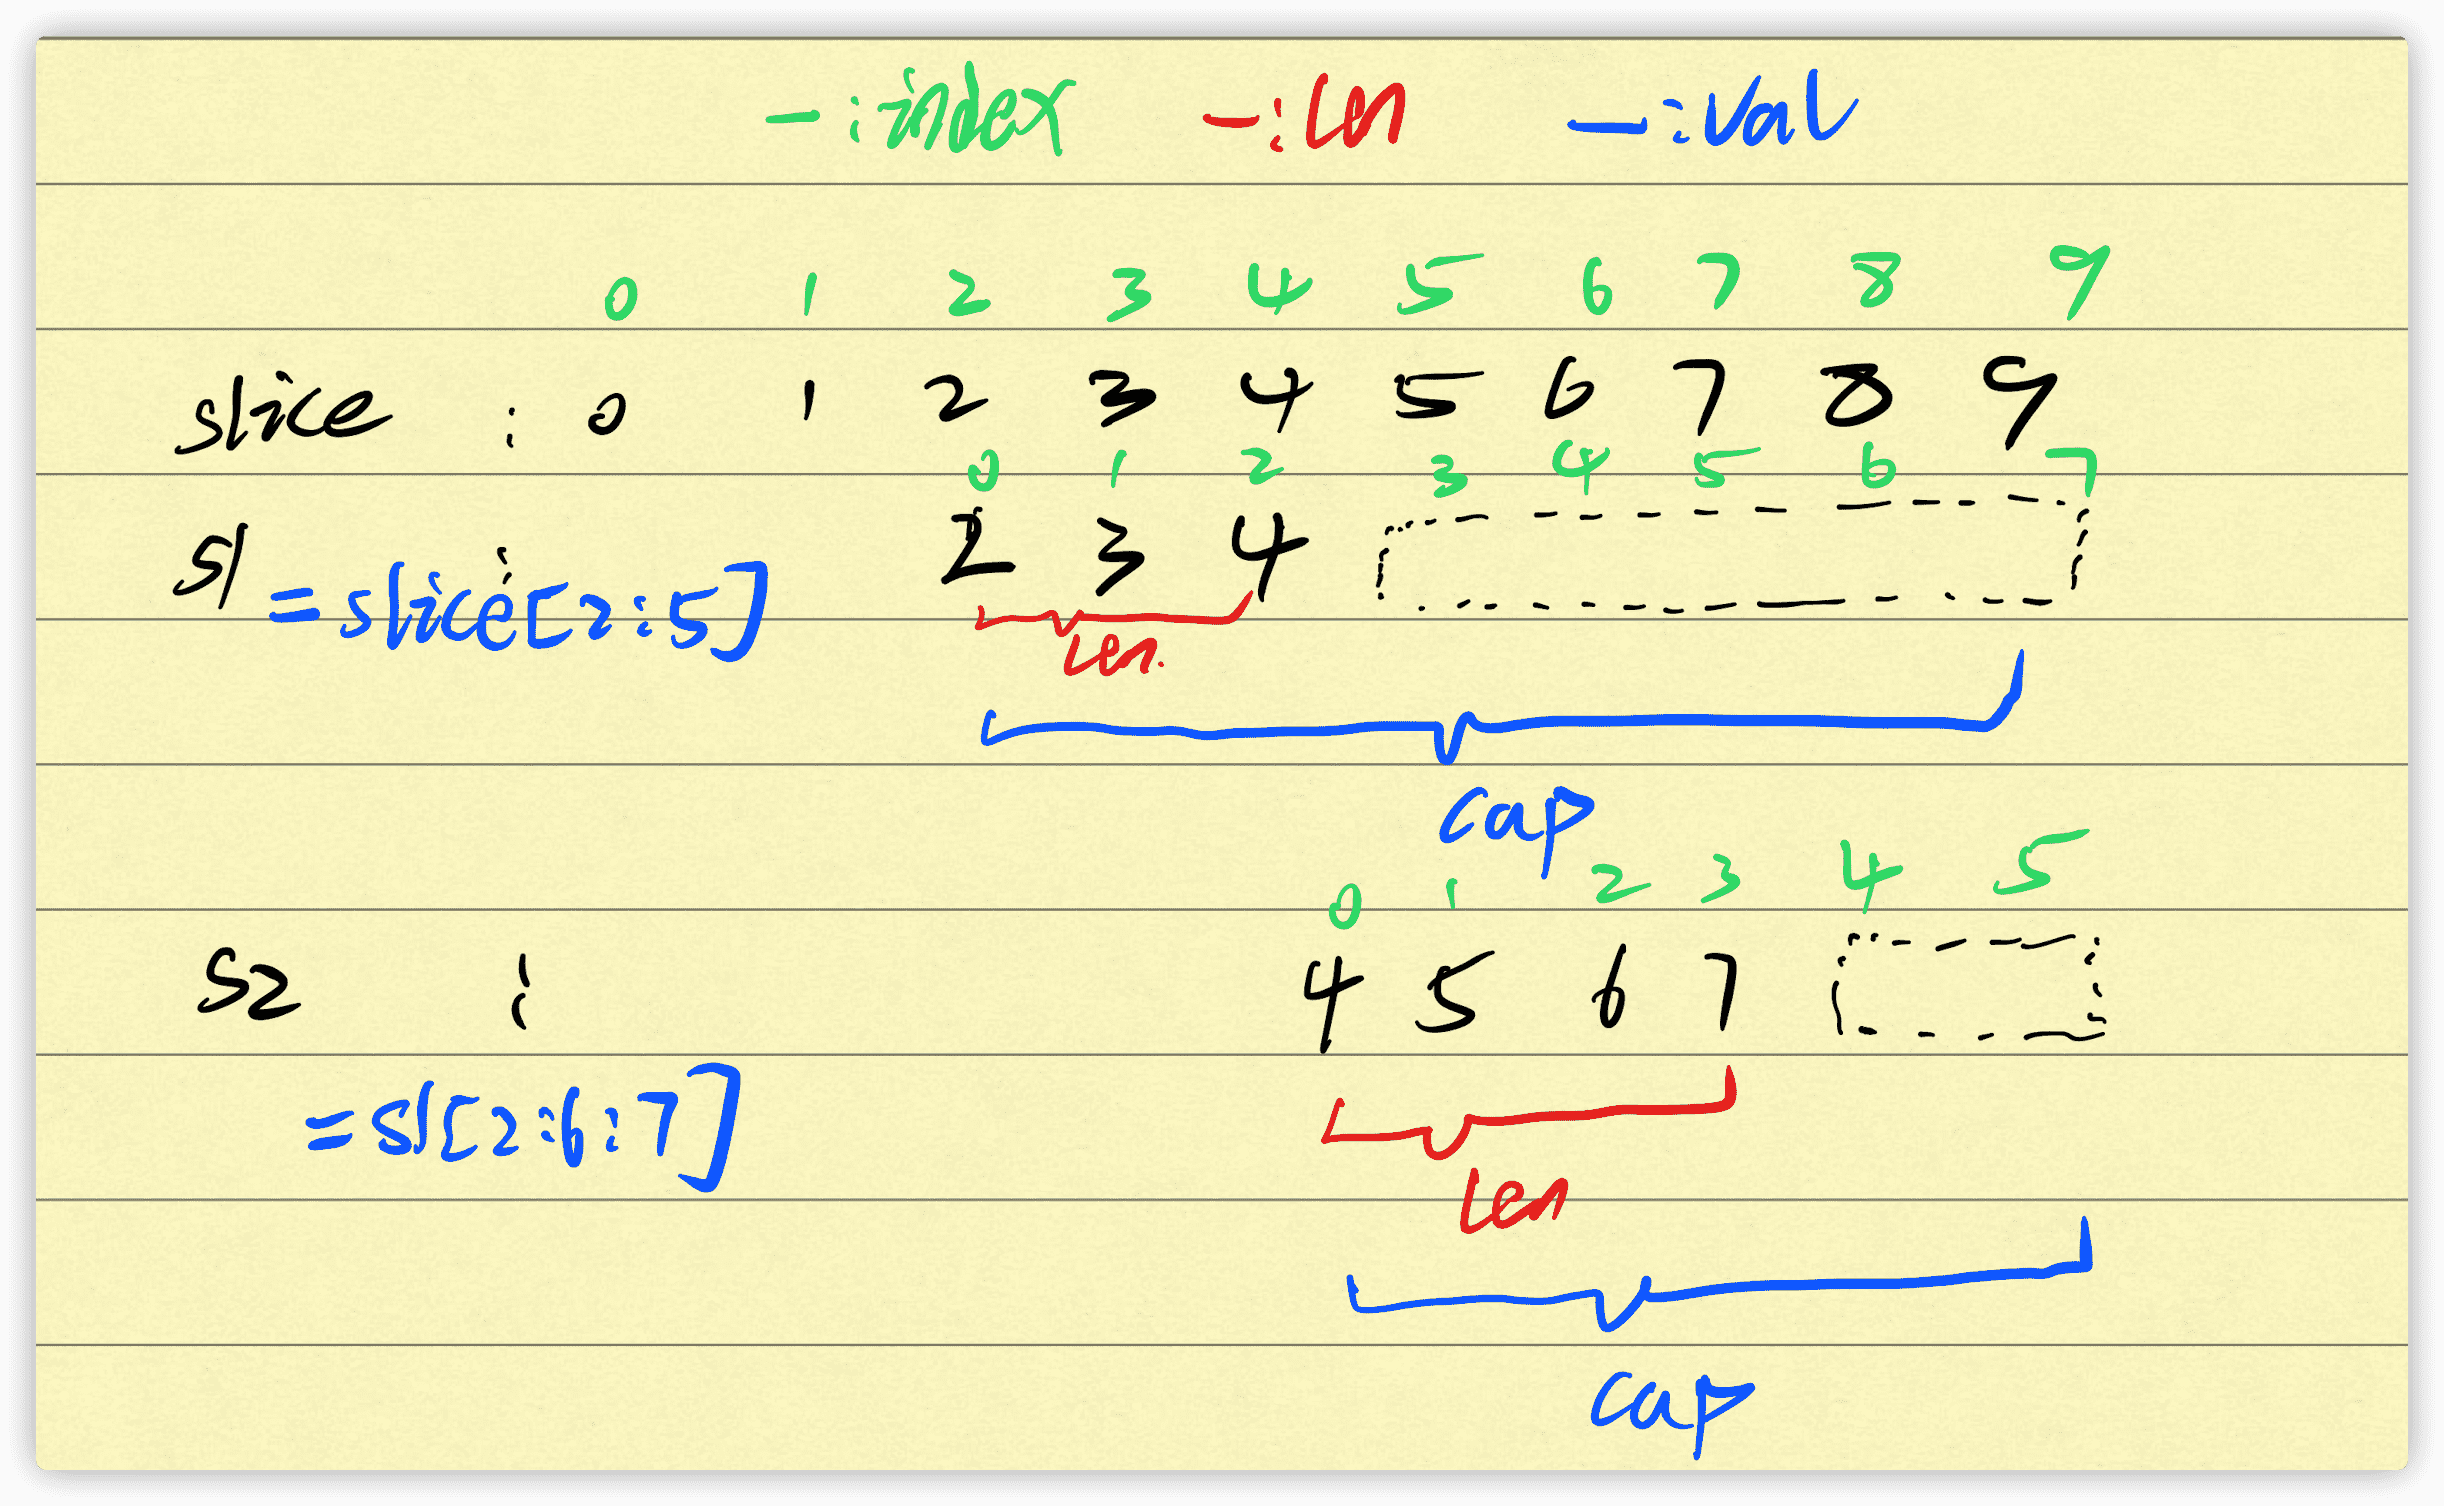 — : index — : len — : val
0 1 2 3 4 5 6 7 8 9
slice : 0 1 2 3 4 5 6 7 8 9
0 1 2 3 4 5 6 7
s1 : 2 3 4
= slice[2:5]
len
cap
0 1 2 3 4 5
s2 : 4 5 6 7
= s1[2:6:7]
len
cap